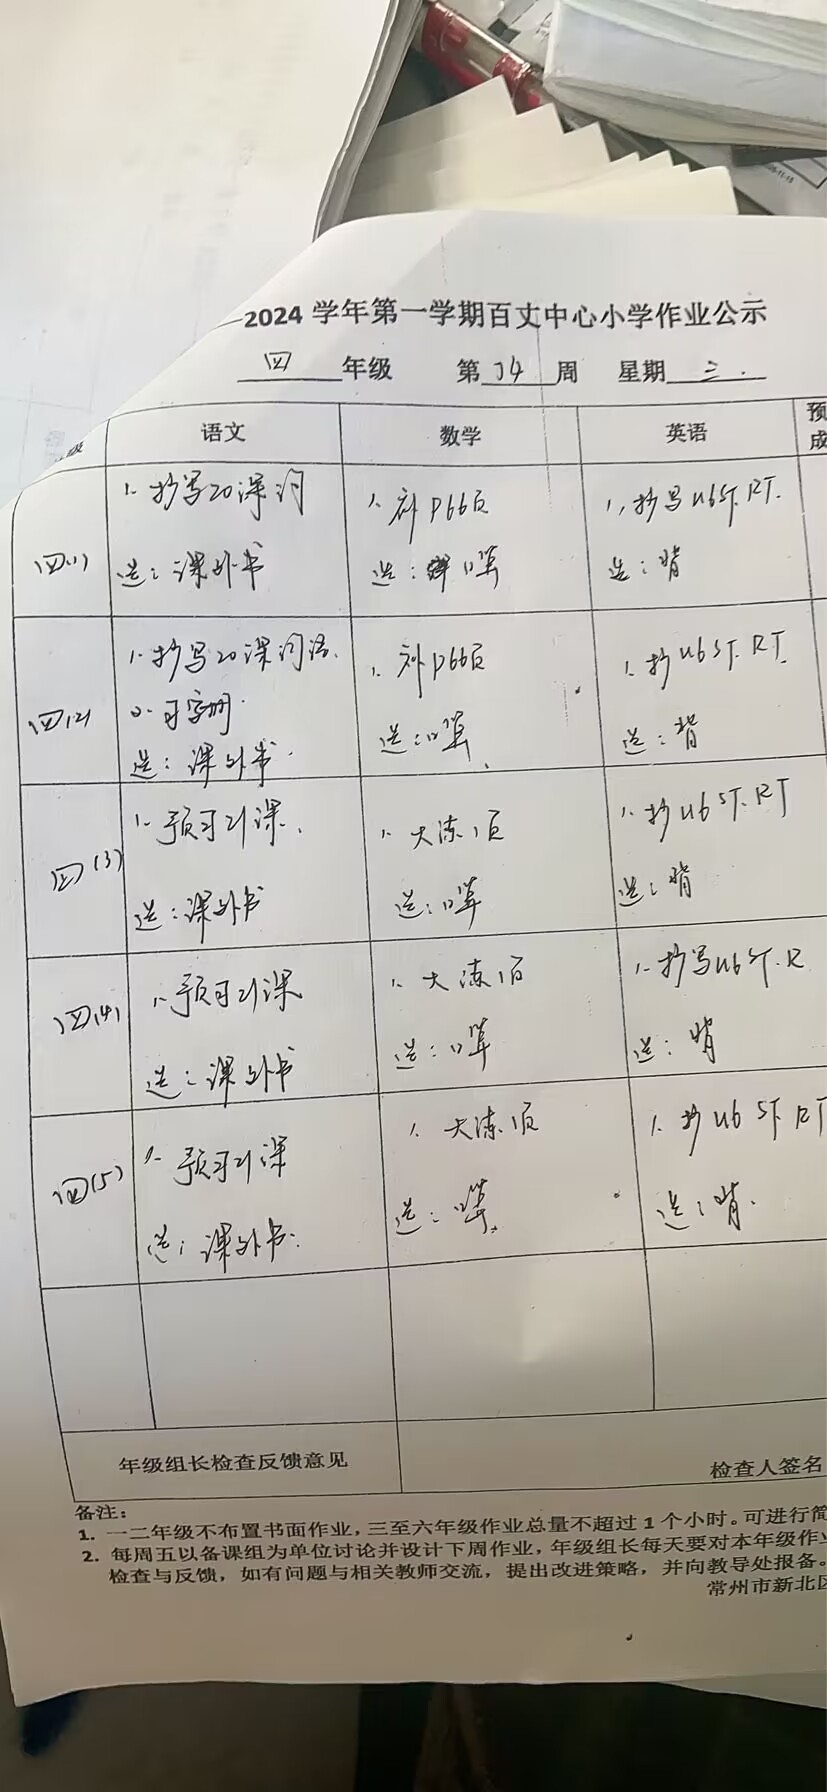 2024 学年第一学期百丈中心小学作业公示
四 年级 第 14 周 星期 三.
级 语文 数学 英语 预
成
四(1)
1. 抄写20课词
选：课外书
1. 补P66页
选：口算
1, 抄写U6ST. RT.
选：背
四(2)
1. 抄写20课词语.
2. 习字册.
选：课外书.
1. 补P66页
选：口算.
1. 抄U6 ST. RT.
选：背
四(3)
1. 预习21课.
选：课外书
1. 大练1页
选：口算
1. 抄U6 ST. RT
选：背
四(4)
1. 预习21课
选：课外书
1. 大练1页
选：口算
1. 抄写U6 ST. R
选：背
四(5)
1. 预习21课
选：课外书.
1. 大练1页
选：口算.
1. 抄U6 ST RT
选：背.
年级组长检查反馈意见
检查人签名
备注：
1. 一二年级不布置书面作业，三至六年级作业总量不超过 1 个小时。可进行简
2. 每周五以备课组为单位讨论并设计下周作业，年级组长每天要对本年级作业
检查与反馈，如有问题与相关教师交流，提出改进策略，并向教导处报备。
常州市新北区